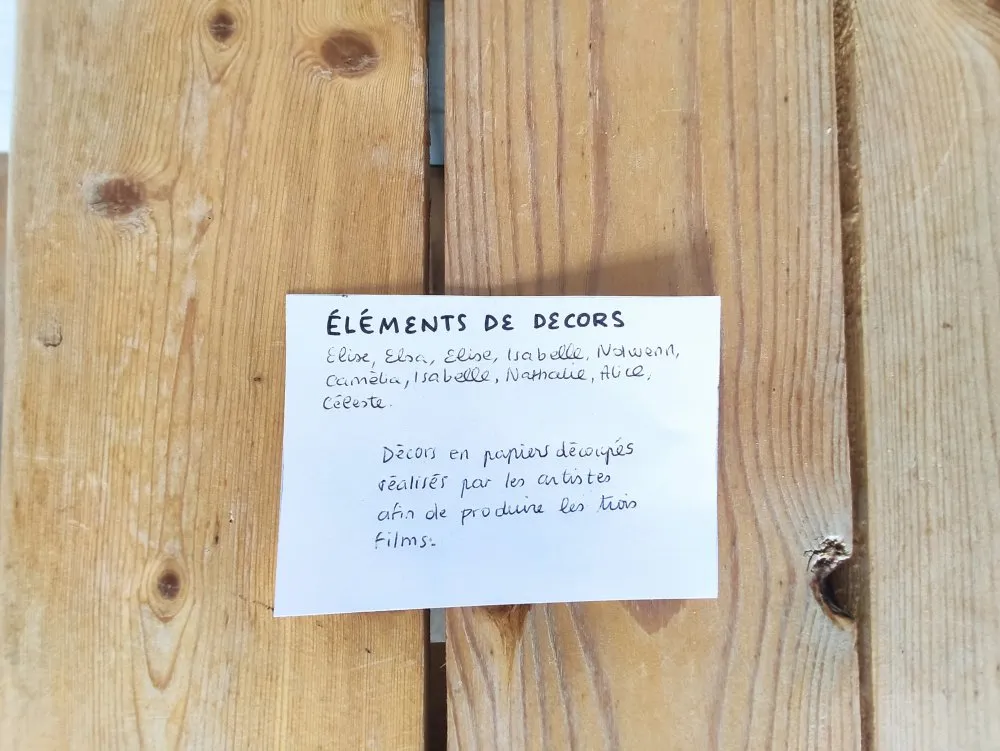 ÉLÉMENTS DE DECORS
Elise, Elsa, Elise, Isabelle, Nolwenn,
Camèlia, Isabelle, Nathalie, Alice,
Céleste.
Décors en papiers découpés
réalisés par les artistes
afin de produire les trois
films.